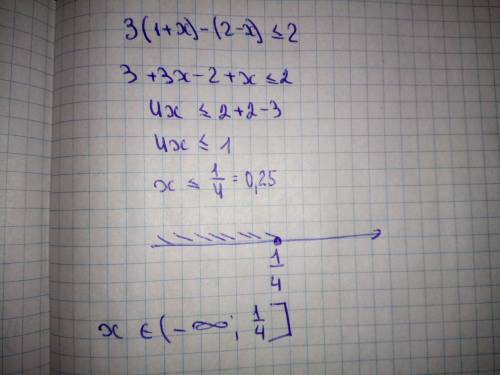 3(1+x)-(2-x) ≤ 2
3+3x-2+x ≤ 2
4x ≤ 2+2-3
4x ≤ 1
x ≤ 1/4 = 0,25
1/4
x ∈ (-∞; 1/4]